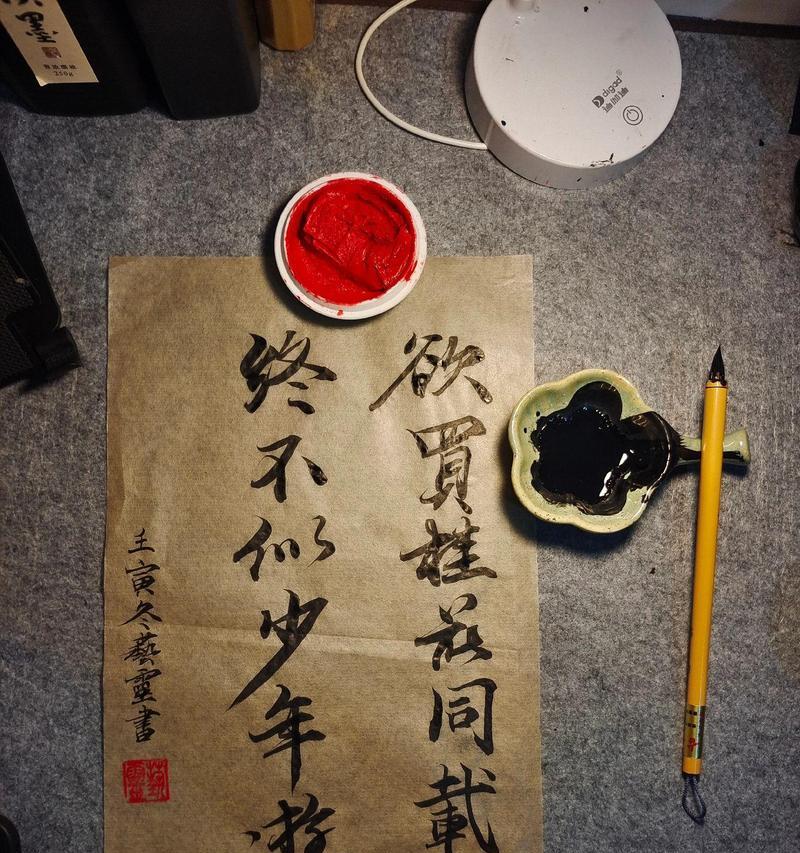 欲買桂花同載
終不似少年游
壬寅冬藝靈書
藝靈
墨
250g
digad